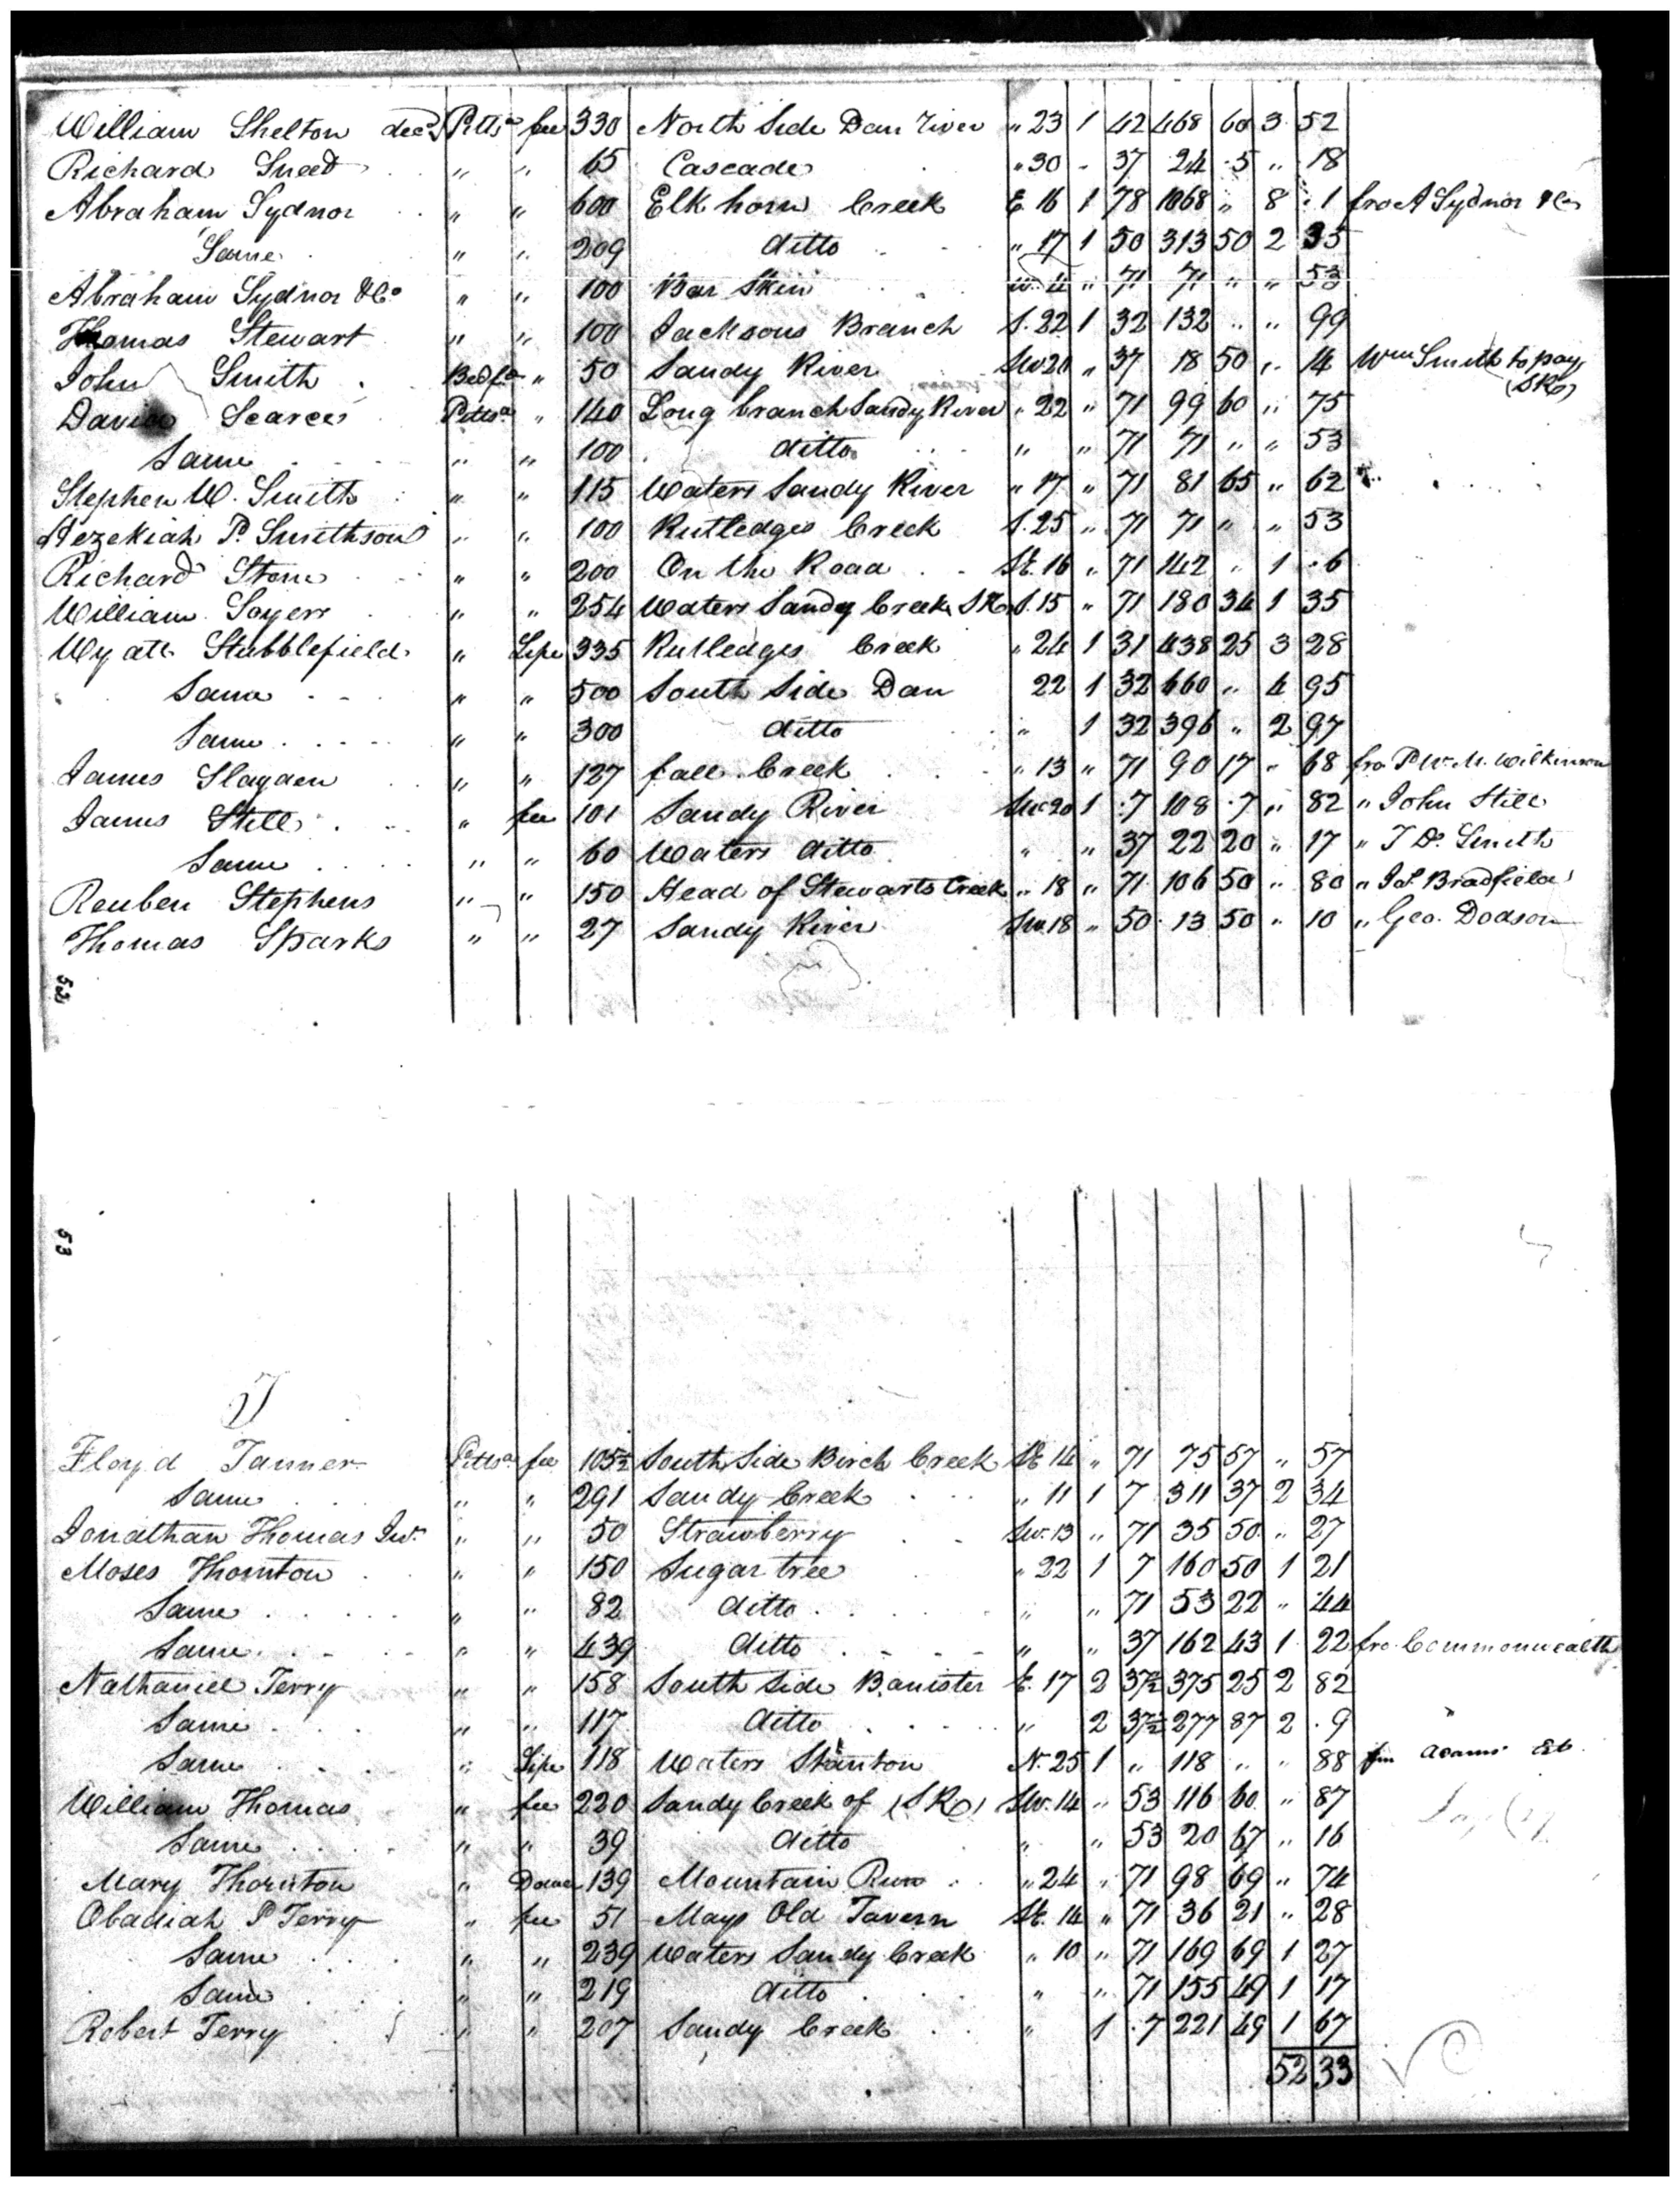 William Shelton decd Pittsa fee 330 North Side Dan River " 23 1 42 468 60 3 52
Richard Sneed " " 65 Cascade " 30 - 37 24 .5 " 18
Abraham Sydnor " " 600 Elk horn Creek E. 16 1 78 1068 " 8 .1 fro A Sydnor & Co
Same " " 209 ditto " 17 1 50 313 50 2 35
Abraham Sydnor & Co " " 100 Bar Skin " 71 71 " " 53
Thomas Stewart " " 100 Jacksons Branch S. 22 1 32 132 " " 99
John Smith Bedfd " 50 Sandy River Sw 20 " 37 18 50 " 14 Wm Smith to pay
(SRo)
David Scarce Pittsa " 140 Long branch Sandy River " 22 " 71 99 60 " 75
Same " " 100 ditto " " 71 71 " " 53
Stephen W. Smith " " 115 Waters Sandy River " 17 " 71 81 65 " 62
Hezekiah P. Smithson " " 100 Rutledges Creek S. 25 " 71 71 " " 53
Richard Stone " " 200 On the Road SE. 16 " 71 142 " 1 .6
William Soyers " " 254 Waters Sandy Creek SRo S. 15 " 71 180 34 1 35
Wyatt Stubblefield " Life 335 Rutledges Creek " 24 1 31 438 25 3 28
Same " " 500 South Side Dan 22 1 32 660 " 4 95
Same " " 300 ditto " 1 32 396 " 2 97
James Slayden " " 127 fall Creek " 13 " 71 90 17 " 68 fro P. W. M. Wilkinson
James Still " fee 101 Sandy River Sw 20 1 .7 108 .7 " 82 " John Still
Same " " 60 Waters ditto " " 37 22 20 " 17 " T D. Smith
Reuben Stephens " " 150 Head of Stewarts Creek " 18 " 71 106 50 " 80 " Bradfield
Thomas Sparks " " 27 Sandy River Sw. 18 " 50 13 50 " 10 " Geo. Dodson
53
T
Floyd Tanner Pittsa fee 105½ South Side Birch Creek SE 14 " 71 75 57 " 57
Same " " 291 Sandy Creek " 11 1 7 311 37 2 34
Jonathan Thomas Junr " " 50 Strawberry Sw. 13 " 71 35 50 " 27
Moses Thornton " " 150 Sugar tree " 22 1 7 160 50 1 21
Same " " 82 ditto " " 71 53 22 " 44
Same " " 439 ditto " " 37 162 43 1 22 fro Commonwealth
Nathaniel Terry " " 158 South Side Banister E. 17 2 37½ 375 25 2 82
Same " " 117 ditto " 2 37½ 277 87 2 .9
Same " Life 118 Waters Stanton N. 25 1 " 118 " " 88 fm Adams Est.
William Thomas " fee 220 Sandy Creek of (SRo) Sw. 14 " 53 116 60 " 87
Same " " 39 ditto " " 53 20 67 " 16
Mary Thornton " Dower 139 Mountain Run " 24 " 71 98 69 " 74
Obadiah P Terry " fee 51 Mays Old Tavern SE. 14 " 71 36 21 " 28
Same " " 239 Waters Sandy Creek " 10 " 71 169 69 1 27
Same " " 219 ditto " " 71 155 49 1 17
Robert Terry " " 207 Sandy Creek " 1 .7 221 49 1 67
52 33